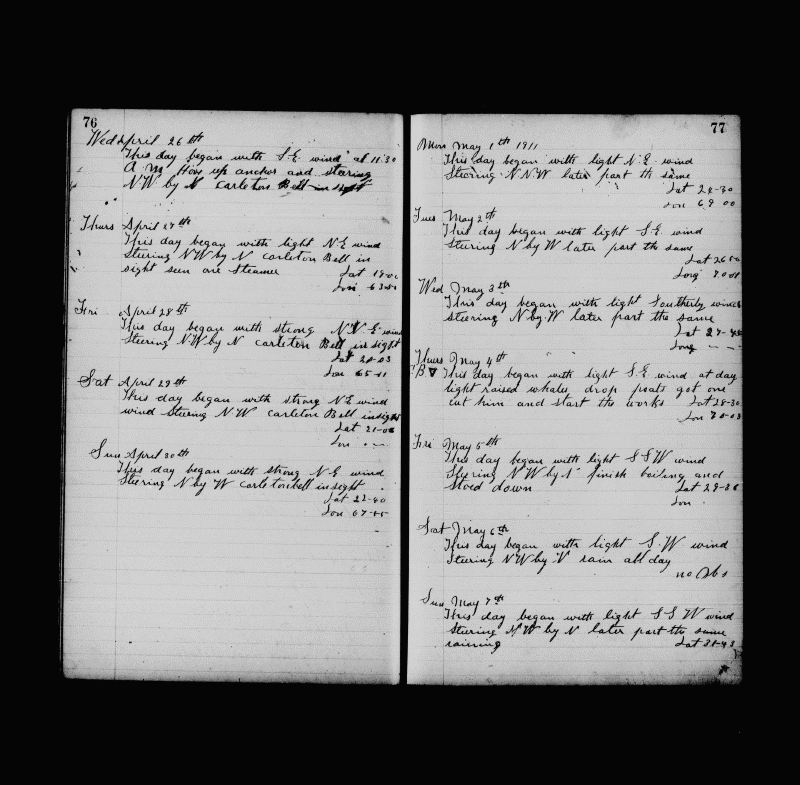 76
Wed April 26th
This day began with S.E. wind at 11.30
A.M. Hove up anchor and stering
NW by N Carleton Bell in sight
Thurs April 27th
This day began with light N.E wind
Stering NW by N Carleton Bell in
sight seen one Steamer Lat 19-00
Lon 63-
Fri April 28th
This day began with strong N N E wind
Stering NW by N Carleton Bell in sight
Lat 20-03
Lon 65-
Sat April 29th
This day began with strong N.E wind
wind Stering N W Carleton Bell insight
Lat 21-
Lon
Sun April 30th
This day began with strong N.E wind
Stering N by W Carletonbell insight
Lat 22-
Lon 67-
77
Mon May 1th 1911
This day began with light N.E. wind
Stering N N.W later part th same
Lat 24-30
Lon 69 00
Tues May 2th
This day began with light S.E. wind
Stering N by W later part the same
Lat 26
Long 70
Wed May 3th
This day began with light Southerly winds
steering N by W later part the same
Lat 27-
Long - - -
Thurs May 4th
This day began with light S.E. wind at day
light raised whales drop boats got one
cut him and start the works Lat 28-30
Lon 70-03
Fri May 5th
This day began with light S S W wind
Steering N W by N finish boiling and
Stoed down Lat 29-
Lon
Sat May 6th
This day began with light S.W wind
Steering N W by N rain all day
no Obs
Sun May 7th
This day began with light S S W wind
Stering N W by N later part the same
raining Lat 31-43